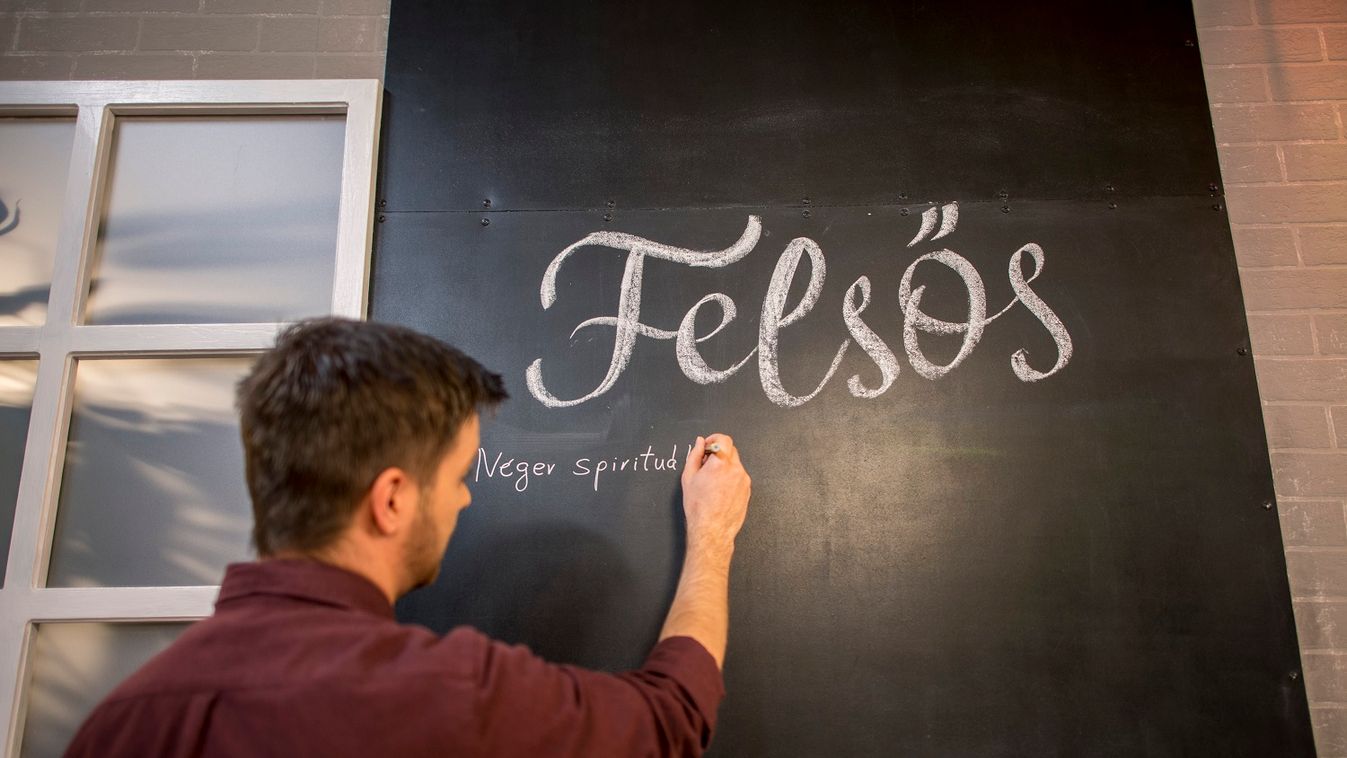 Felsős
Néger spirituá